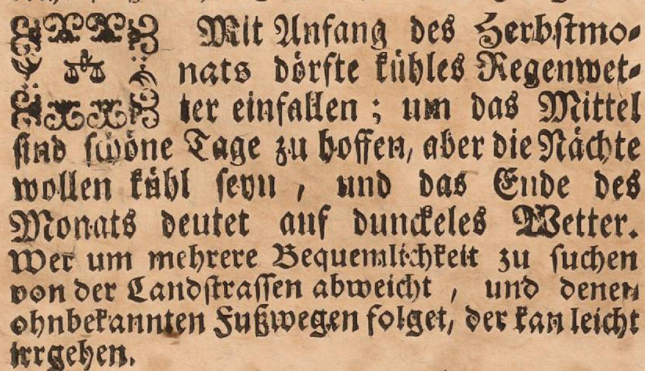 Mit Anfang des Herbstmo-
nats dörfte kühles Regenwet-
ter einfallen ; um das Mittel
sind schöne Tage zu hoffen, aber die Nächte
wollen kühl seyn , und das Ende des
Monats deutet auf dunckeles Wetter.
Wer um mehrere Bequemlichkeit zu suchen
von der Landstrassen abweicht , und denen
ohnbekannten Fußwegen folget, der kan leicht
irrgehen.